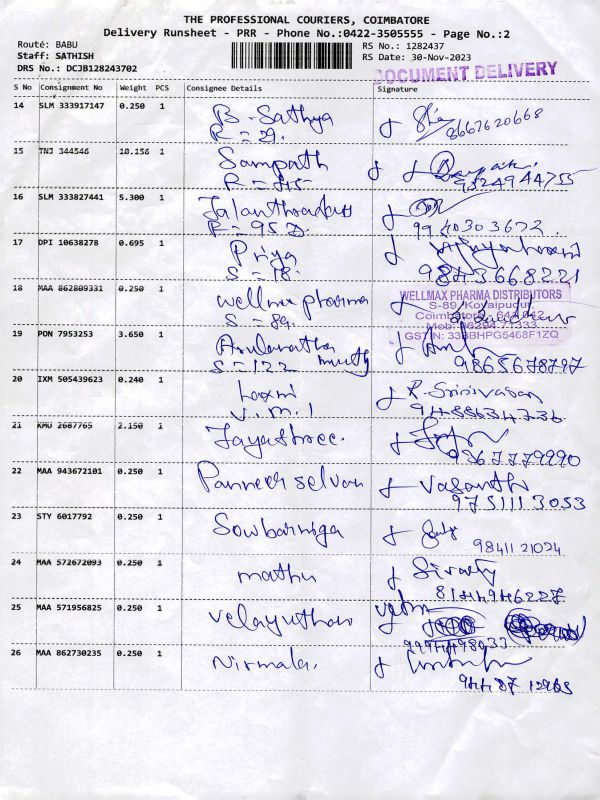 THE PROFESSIONAL COURIERS, COIMBATORE
Delivery Runsheet - PRR - Phone No.:0422-3505555 - Page No.:2
Route: BABU
RS No.: 1282437
Staff: SATHISH
RS Date: 30-Nov-2023
DRS No.: DCJB128243702
DOCUMENT DELIVERY
S No Consignment No Weight PCS Consignee Details Signature
14 SLM 333917147 0.250 1 B. Sathya
R = 29. 8667620668
15 TNJ 344546 10.156 1 Sampath
R = 45 9524944755
16 SLM 333827441 5.300 1
R = 95 9940303672
17 DPI 10638278 0.695 1 Priya
S = 18. 9843668221
18 MAA 862809331 0.250 1 Wellmax pharma
S = 89.
WELLMAX PHARMA DISTRIBUTORS
S-89, Kovaipudur
Coimbatore - 641 042
Mob: 96294 71333
GSTN: 33BBHPG5468F1ZQ
19 PON 7953253 3.650 1
S = 122 9865678797
20 IXM 505439623 0.240 1 Laxmi R. Srinivasan
V.M.1 9488634736
21 KMU 2687765 2.150 1 Jayashree.
9367779290
22 MAA 943672101 0.250 1 Panneer selvan Vasanthi
9751113053
23 STY 6017792 0.250 1 Sowbarniga
9841121024
24 MAA 572672093 0.250 1 mathu
8144946227
25 MAA 571956825 0.250 1 Velayuthan
26 MAA 862730235 0.250 1 Nirmala.